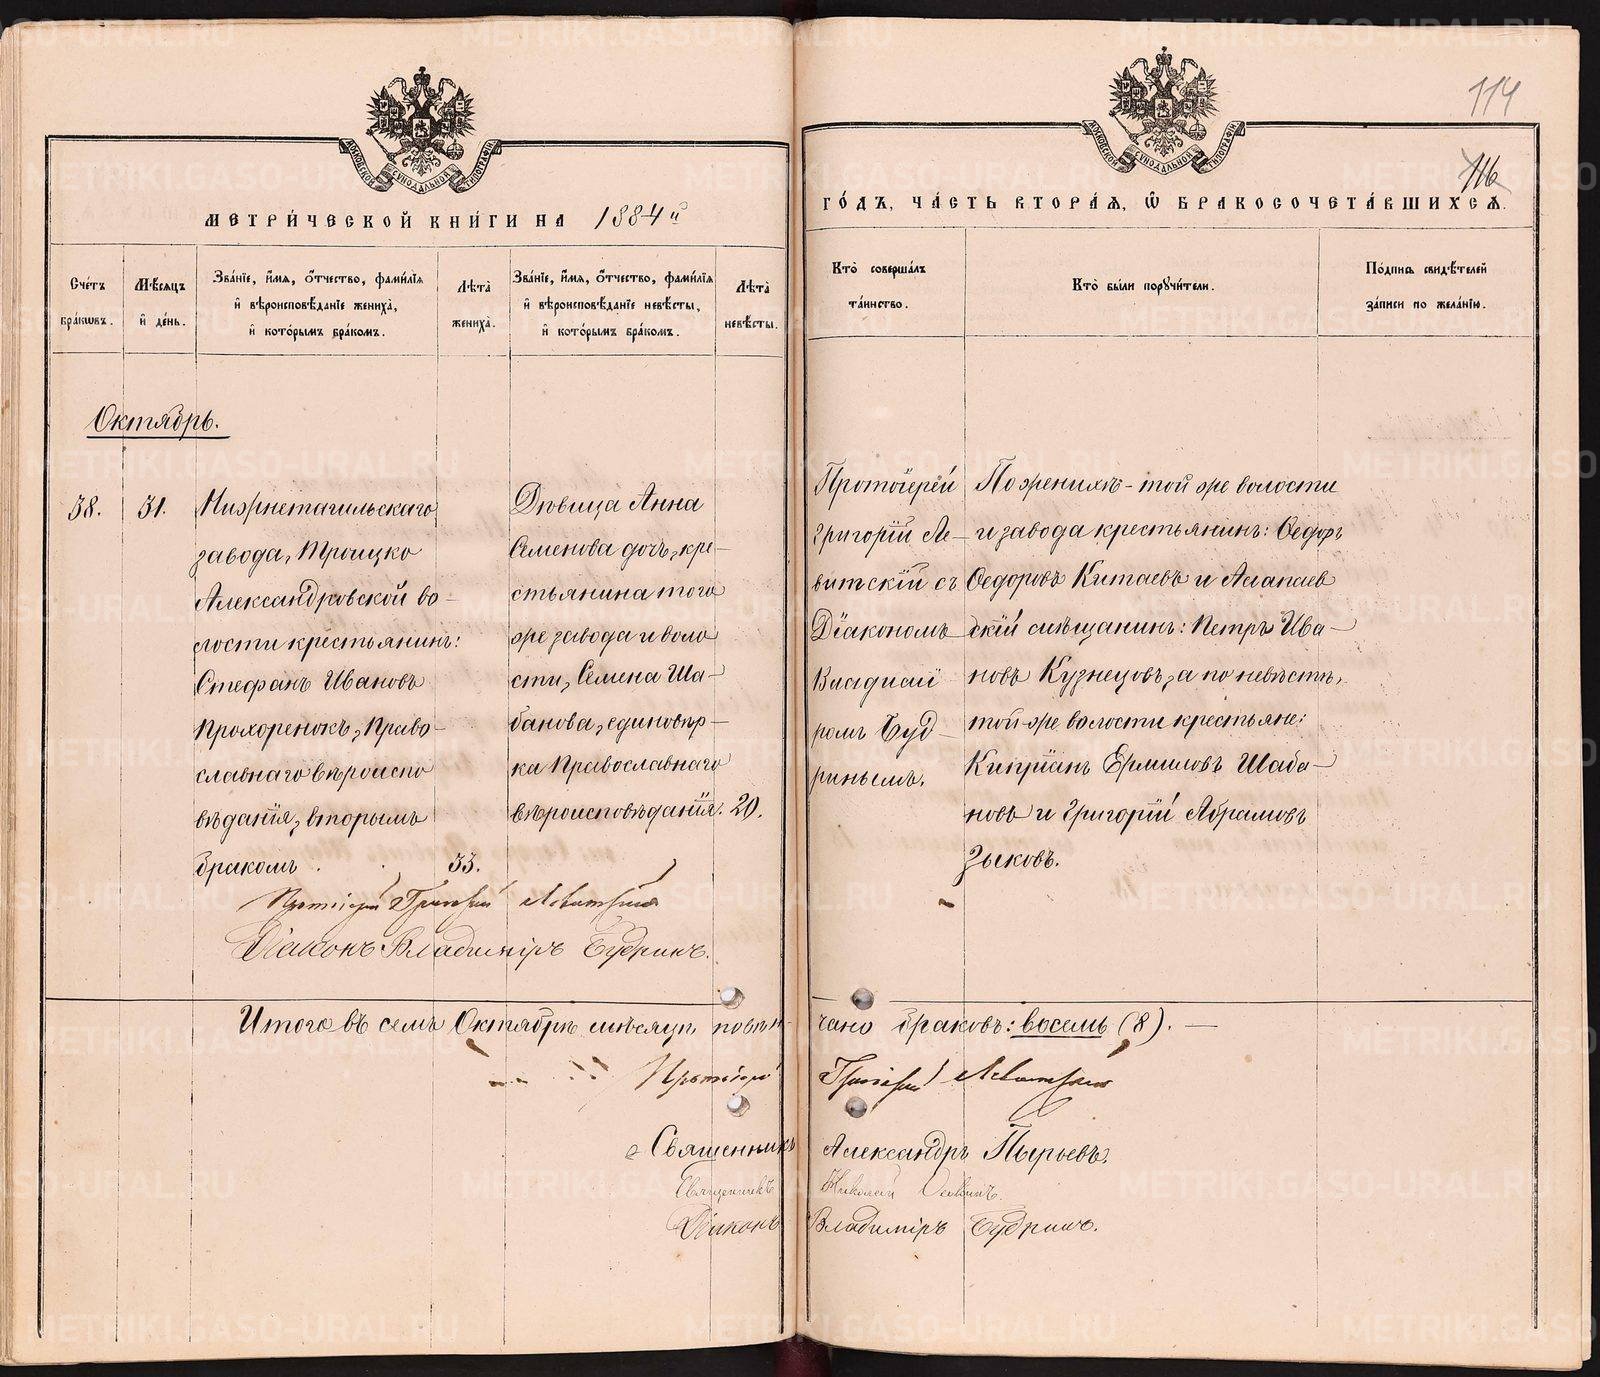 114
116
МОСКОВСКОЙ СѴНОДАЛЬНОЙ ТИПОГРАФІИ
МОСКОВСКОЙ СѴНОДАЛЬНОЙ ТИПОГРАФІИ
МЕТРИ́ЧЕСКОЙ КНИ́ГИ НА 1884 й
ГО́ДЪ, ЧА́СТЬ ВТОРА́Ѧ, Ѽ БРАКОСОЧЕТА́ВШИХСѦ.
Сче́тъ бра́кѡвъ.
Мѣ́сѧцъ и҆ де́нь.
Зва́нїе, и҆́мѧ, ѻ҆́тчество, фами́лїѧ и҆ вѣроисповѣ́данїе жениха̀, и҆ кото́рымъ бра́комъ.
Лѣ́та̀ жениха̀.
Зва́нїе, и҆́мѧ, ѻ҆́тчество, фами́лїѧ и҆ вѣроисповѣ́данїе невѣ́сты, и҆ кото́рымъ бра́комъ.
Лѣ́та̀ невѣ́сты.
Кто̀ соверша́лъ та́инство.
Кто̀ бы́ли порꙋчи́тели.
По́дпись свидѣ́телей за́писи по жела́нїю.
Октябрь.
38.
31.
Нижнетагильскаго
завода, Троицко
Александровской во-
лости крестьянинъ:
Стефанъ Ивановъ
Прохоренокъ, Право-
славнаго вѣроиспо
вѣданія, вторымъ
бракомъ . . 33.
Дѣвица Анна
Семенова дочь, кре-
стьянина того
же завода и воло
сти, Семена Ша-
банова, единовѣр-
ка Православнаго
вѣроисповѣданія. 20.
Протоіерей
Григорій Ле-
витскій съ
Діакономъ
Владимі
ромъ Буд-
ринымъ.
По женихѣ - той же волости
и завода крестьянинъ: Ѳедоръ
Ѳедоровъ Китаевъ и Алапаев
скій мѣщанинъ: Петръ Ива-
новъ Кузнецовъ, а по невѣстѣ,
той-же волости крестьяне:
Кипріанъ Ермиловъ Шаба-
новъ и Григорій Абрамовъ
Зыковъ.
Протоіерей Григорій Левитскій
Діаконъ Владиміръ Будринъ.
Итого въ семъ Октябрѣ мѣсяцѣ повѣн- чано браковъ: восемь (8). —
Протоіерей Григорій Левитскій
Священникъ Александръ Пырьевъ.
Священникъ Николай
Діаконъ Владиміръ Будринъ.